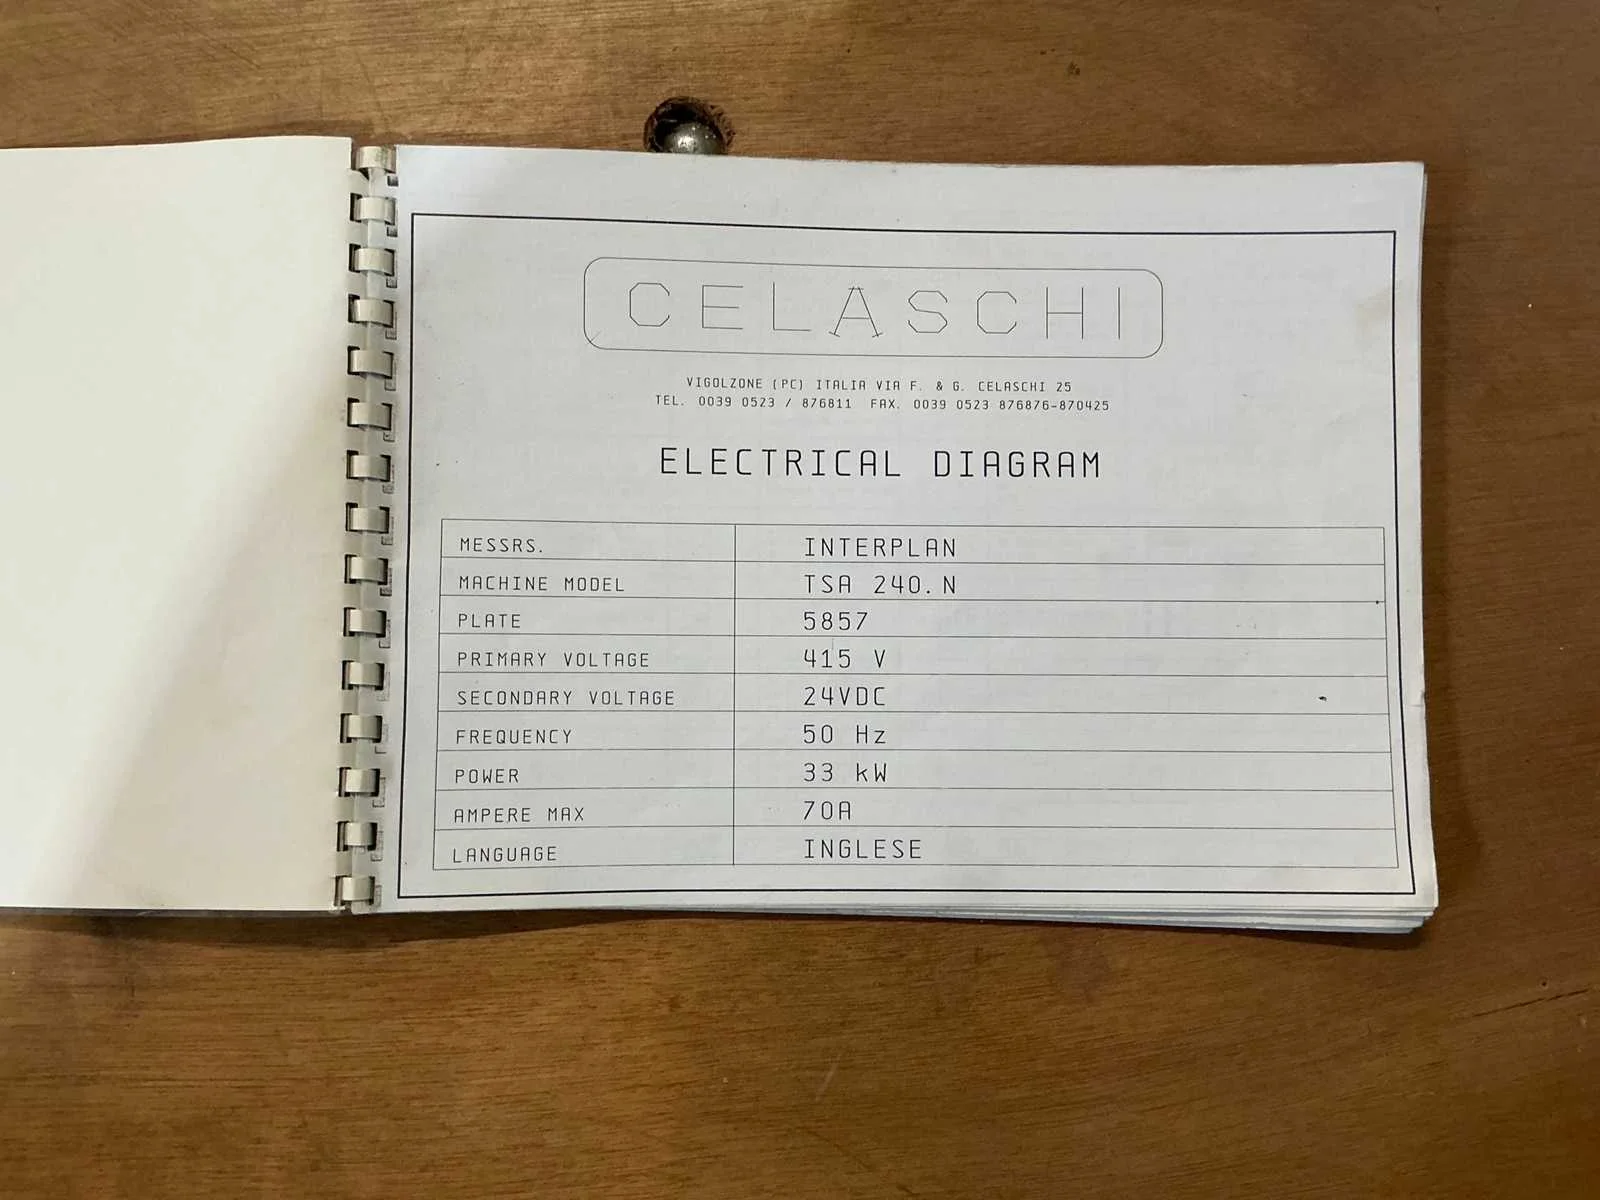 CELASCHI
VIGOLZONE (PC) ITALIA VIA F. & G. CELASCHI 25
TEL. 0039 0523 / 876811 FAX. 0039 0523 876876-870425
ELECTRICAL DIAGRAM
MESSRS. INTERPLAN
MACHINE MODEL TSA 240.N
PLATE 5857
PRIMARY VOLTAGE 415 V
SECONDARY VOLTAGE 24VDC
FREQUENCY 50 Hz
POWER 33 kW
AMPERE MAX 70A
LANGUAGE INGLESE